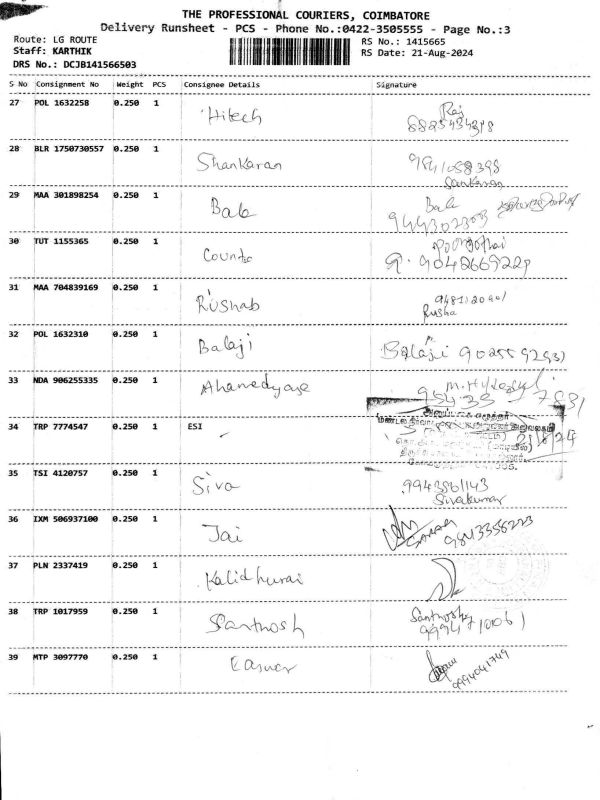 THE PROFESSIONAL COURIERS, COIMBATORE
Delivery Runsheet - PCS - Phone No.:0422-3505555 - Page No.:3
Route: LG ROUTE
RS No.: 1415665
Staff: KARTHIK
RS Date: 21-Aug-2024
DRS No.: DCJB141566503
S No Consignment No Weight PCS Consignee Details Signature
27 POL 1632258 0.250 1 Hitech Raj
8825434318
28 BLR 1750730557 0.250 1 Shankaran 9841058398
Sankaran
29 MAA 301898254 0.250 1 Bala Bala
30 TUT 1155365 0.250 1 Poongothai
9042669229
31 MAA 704839169 0.250 1 Rushab
Rusha
32 POL 1632310 0.250 1 Balaji Balaji
33 NDA 906255335 0.250 1
34 TRP 7774547 0.250 1 ESI 21/8/24
35 TSI 4120757 0.250 1 Siva 9943561143
Sivakumar
36 IXM 506937100 0.250 1 Jai 9843356223
37 PLN 2337419 0.250 1 Kalidhurai
38 TRP 1017959 0.250 1 Santhosh Santhosh
39 MTP 3097770 0.250 1 9994041749